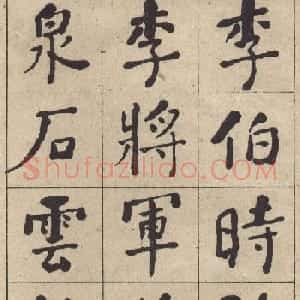 李伯時
李將軍
泉石雲
Shufaziliao.com